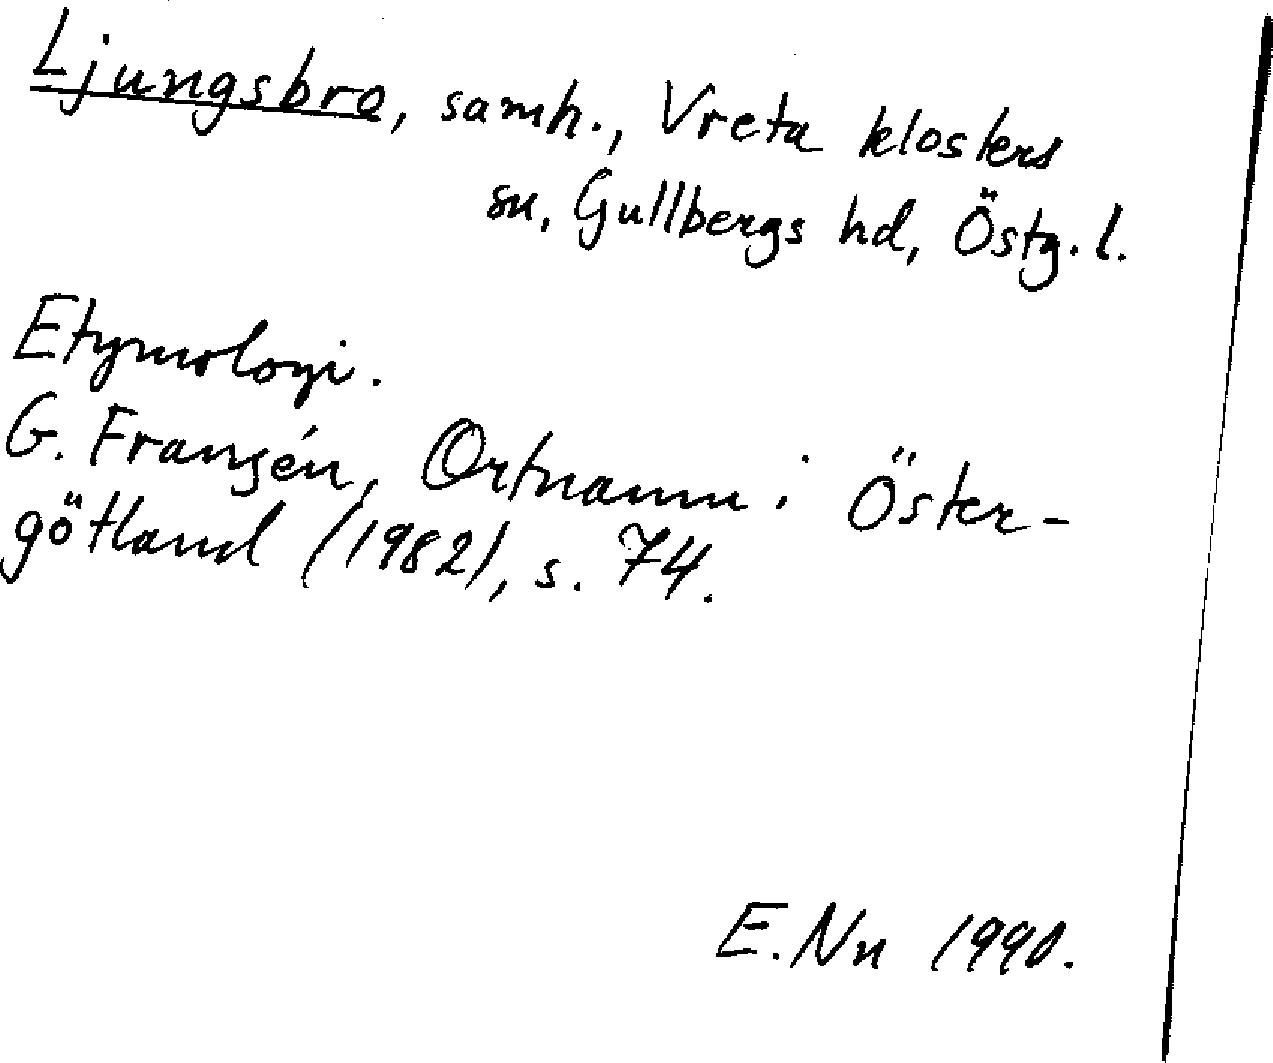 Ljungsbro, samh., Vreta klosters
sn, Gullbergs hd, Östg. l.
Etymologi.
G. Franzén, Ortnamn i Öster-
götland (1982), s. 74.
E. Nn 1990.